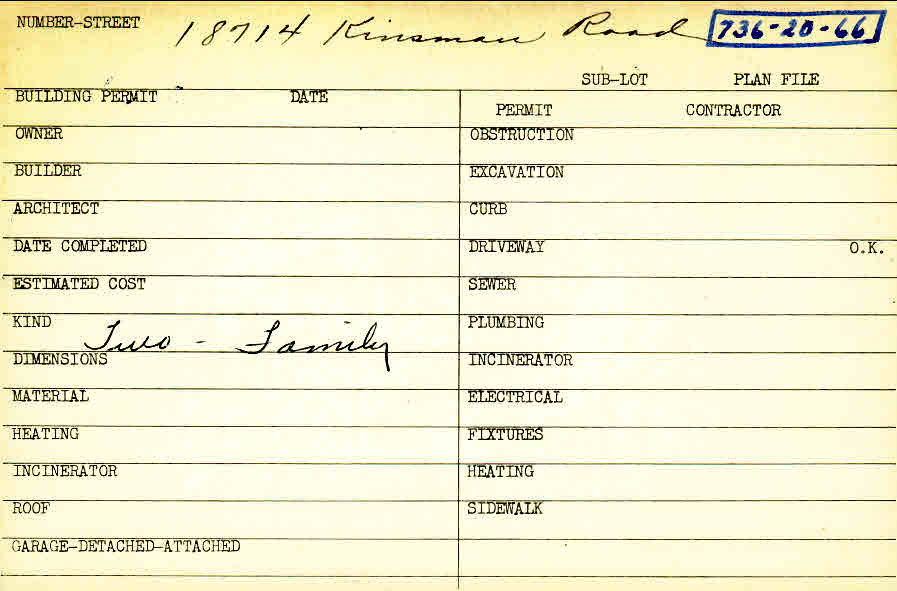 NUMBER-STREET 18714 Kinsman Road 736-20-66
SUB-LOT PLAN FILE
BUILDING PERMIT DATE
PERMIT CONTRACTOR
OWNER
OBSTRUCTION
BUILDER
EXCAVATION
ARCHITECT
CURB
DATE COMPLETED
DRIVEWAY O.K.
ESTIMATED COST
SEWER
KIND Two - Family
PLUMBING
DIMENSIONS
INCINERATOR
MATERIAL
ELECTRICAL
HEATING
FIXTURES
INCINERATOR
HEATING
ROOF
SIDEWALK
GARAGE-DETACHED-ATTACHED